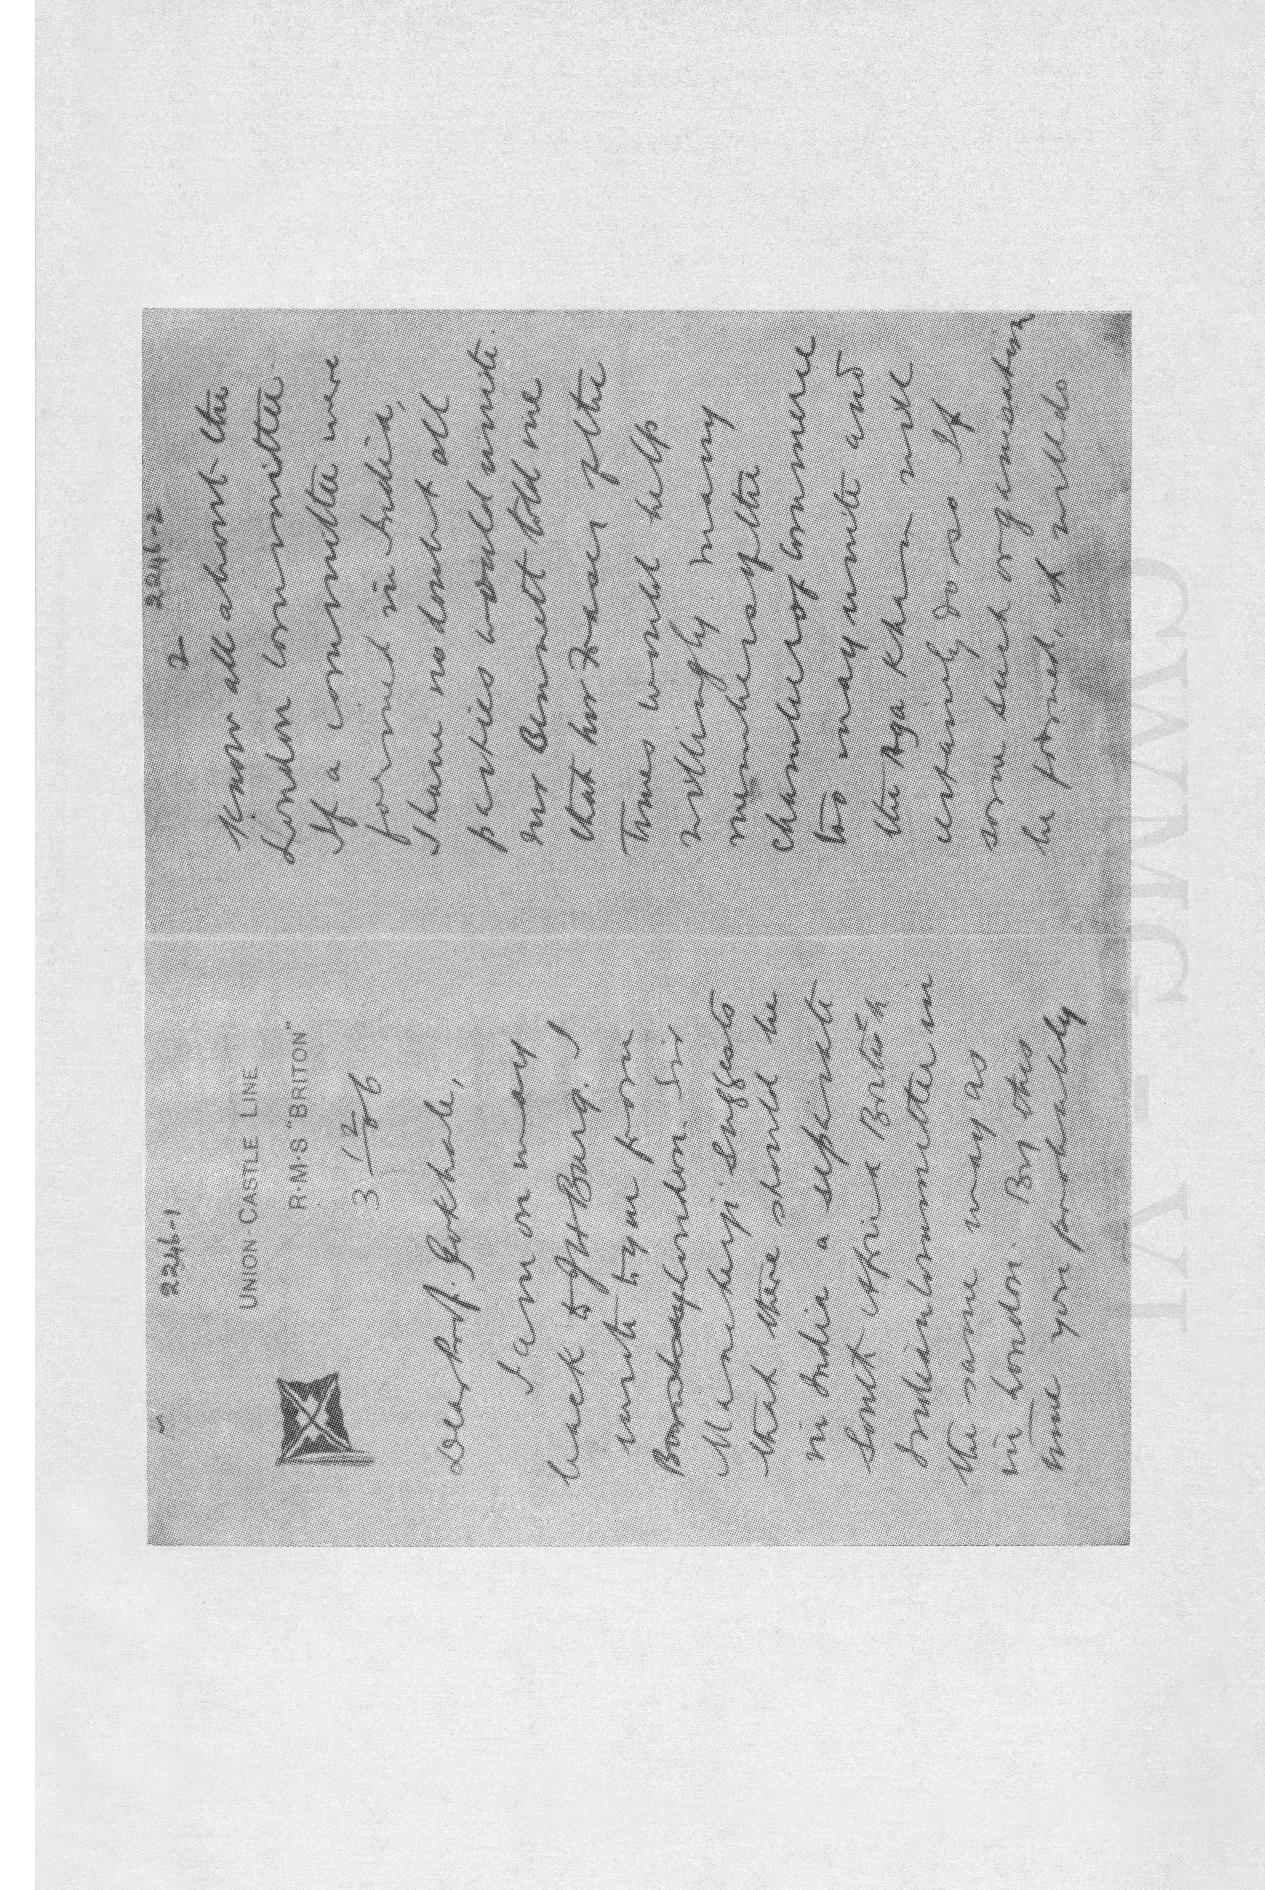 2246-1
UNION-CASTLE LINE
R·M·S "BRITON"
3/12/06
Dear Prof. Gokhale,
I am on my way
back to JHBurg. I
write to you from
London. Sir
Mancherji suggests
that there should be
in India a separate
South Africa British
Indian Committee in
the same way as
in London. By this
time you probably
2246-2
2
know all about the
London Committee.
If a committee were
formed in India,
I have no doubt all
parties would unite.
Mr Bennett told me
that Mr Fraser of the
Times would help
willingly many
members of the
Chamber of Commerce
too may unite and
the Aga Khan will
certainly do so If
some such organisation
be formed, it will do
CWMG - VI